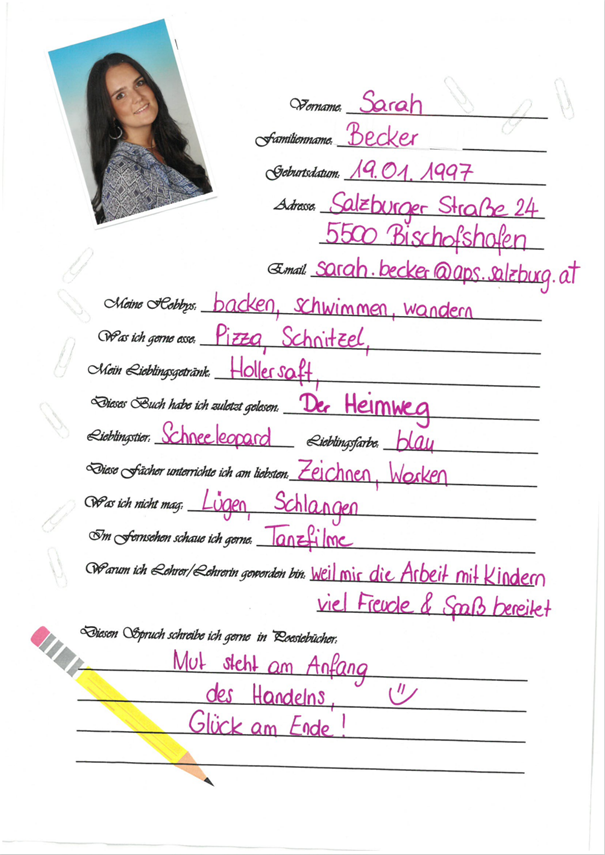 Vorname: Sarah
Familienname: Becker
Geburtsdatum: 19.01.1997
Adresse: Salzburger Straße 24
5500 Bischofshofen
Email: sarah.becker@aps.salzburg.at
Meine Hobbys: backen, schwimmen, wandern
Was ich gerne esse: Pizza, Schnitzel,
Mein Lieblingsgetränk: Hollersaft,
Dieses Buch habe ich zuletzt gelesen: Der Heimweg
Lieblingstier: Schneeleopard Lieblingsfarbe: blau
Diese Fächer unterrichte ich am liebsten: Zeichnen, Werken
Was ich nicht mag: Lügen, Schlangen
Im Fernsehen schaue ich gerne: Tanzfilme
Warum ich Lehrer/Lehrerin geworden bin: weil mir die Arbeit mit Kindern
viel Freude & Spaß bereitet
Diesen Spruch schreibe ich gerne in Poesiebücher:
Mut steht am Anfang
des Handelns,
Glück am Ende!